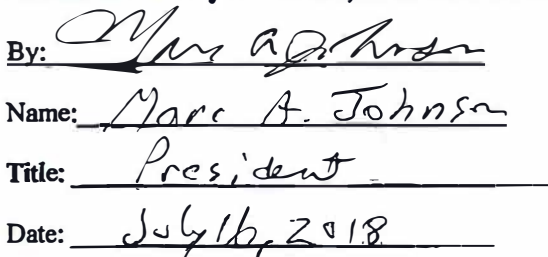 By: Marc A Johnson
Name: Marc A. Johnson
Title: President
Date: July 16, 2018